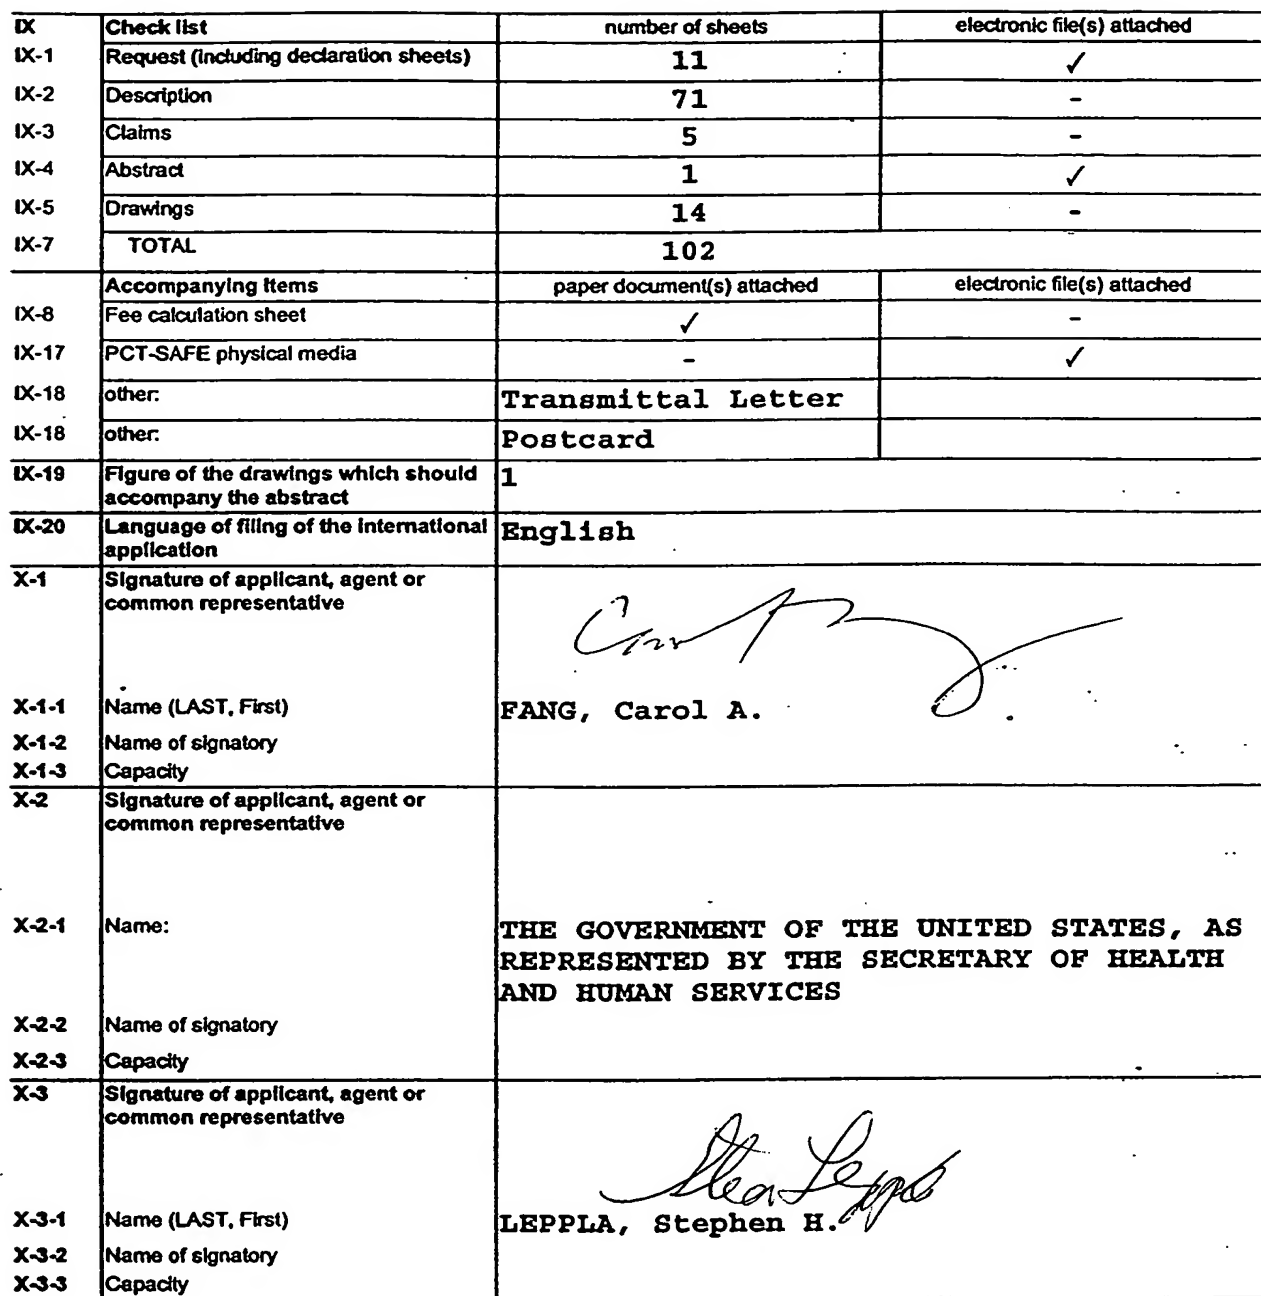 IX Check list number of sheets electronic file(s) attached
IX-1 Request (including declaration sheets) 11 ✓
IX-2 Description 71 -
IX-3 Claims 5 -
IX-4 Abstract 1 ✓
IX-5 Drawings 14 -
IX-7 TOTAL 102
Accompanying Items paper document(s) attached electronic file(s) attached
IX-8 Fee calculation sheet ✓ -
IX-17 PCT-SAFE physical media - ✓
IX-18 other: Transmittal Letter
IX-18 other: Postcard
IX-19 Figure of the drawings which should 1
accompany the abstract
IX-20 Language of filing of the international English
application
X-1 Signature of applicant, agent or
common representative
X-1-1 Name (LAST, First) FANG, Carol A.
X-1-2 Name of signatory
X-1-3 Capacity
X-2 Signature of applicant, agent or
common representative
X-2-1 Name: THE GOVERNMENT OF THE UNITED STATES, AS
REPRESENTED BY THE SECRETARY OF HEALTH
AND HUMAN SERVICES
X-2-2 Name of signatory
X-2-3 Capacity
X-3 Signature of applicant, agent or
common representative
X-3-1 Name (LAST, First) LEPPLA, Stephen H.
X-3-2 Name of signatory
X-3-3 Capacity